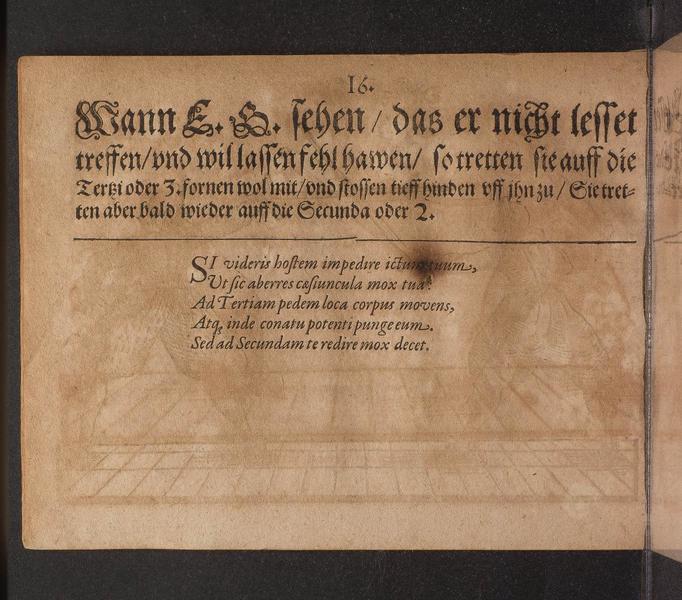 16.
Wann E. G. sehen / das er nicht lesset
treffen / vnd wil lassen fehl hawen / so tretten sie auff die
Tertzi oder 3. fornen wol mit / vnd stossen tieff hinden vff jhn zu / Sie tret-
ten aber bald wieder auff die Secunda oder 2.
SI videris hostem impedire ictum tuum,
Ut sic aberres cæsiuncula mox tua:
Ad Tertiam pedem loca corpus movens,
Atq; inde conatu potenti punge eum.
Sed ad Secundam te redire mox decet.